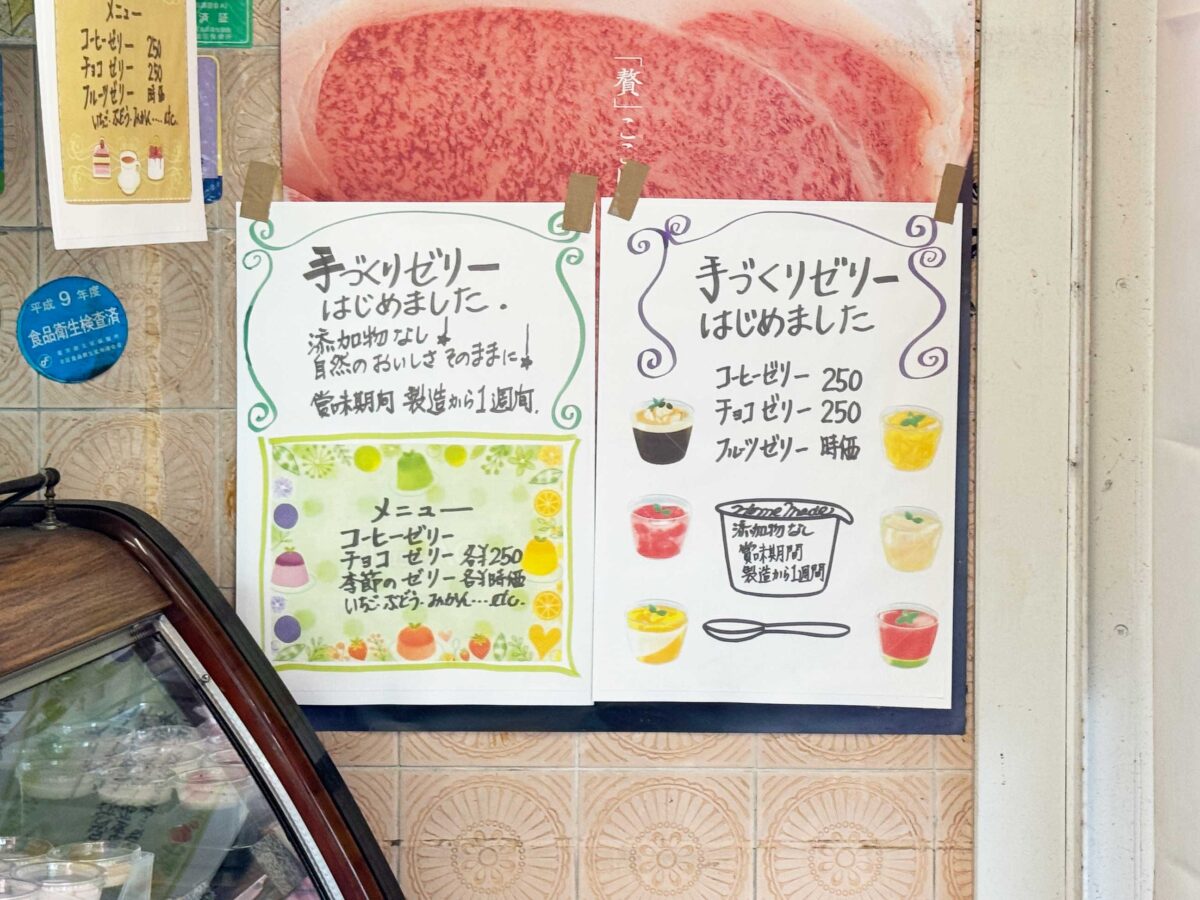 メニュー
コーヒーゼリー 250
チョコ ゼリー 250
フルーツゼリー 時価
いちご・ぶどう・みかん・・・・etc.
済証
「贅」ここ
平成9年度
食品衛生検査済
手づくりゼリー
はじめました.
添加物なし!
自然のおいしさそのままに!
賞味期間 製造から1週間.
メニュー
コーヒーゼリー
チョコ ゼリー 各¥250
季節の ゼリー 各¥時価
いちご・ぶどう・みかん・・・etc.
手づくりゼリー
はじめました
コーヒーゼリー 250
チョコ ゼリー 250
フルーツゼリー 時価
Home made
添加物なし
賞味期間
製造から1週間